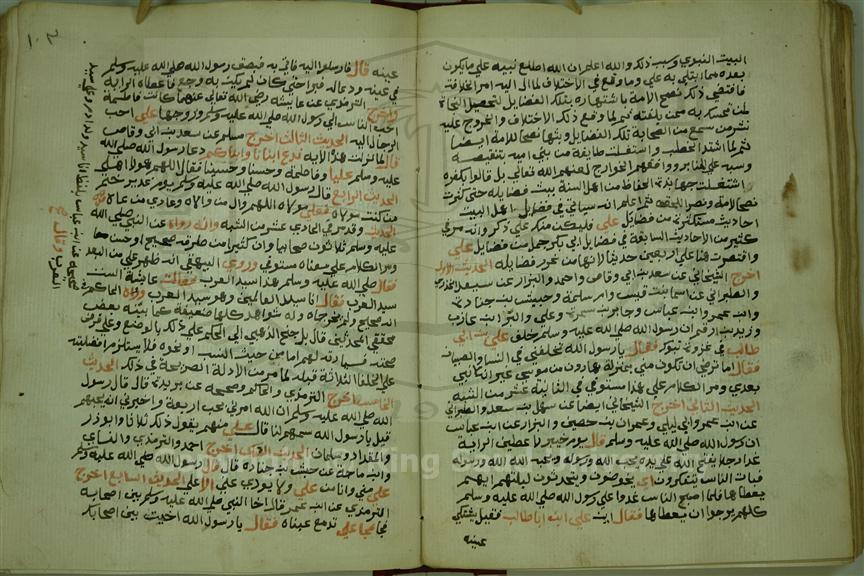 البيت النبوي وسبب ذلك والله اعلم ان الله اطلع نبيه على ما يكون
بعده مما ابتلي به علي وما وقع من الاختلاف لما ال اليه امر الخلافة
فاقتضى ذلك نصح الامة باشتهاره بتلك الفضايل لتحصل النجاة
لمن تمسك به ممن بلغته ثم لما وقع ذلك الاختلاف والخروج عليه
نشر من سمع من الصحابة تلك الفضايل وبثها نصحا للامة ايضا
ثم لما اشتد الخطب واشتغلت طايفة من بني امية بتنقيصه
وسبه على المنابر ووافقهم الخوارج لعنهم الله تعالى بل قالوا بكفره
اشتغلت جهابذة الحفاظ من اهل السنة ببث فضايله حتى كثرت
نصحا للامة ونصرة للحق ثم اعلم انه سياتي في فضايل اهل البيت
احاديث مستكثرة من فضايل علي فليكن منك على ذكر وانه مر في
كثير من الاحاديث السابقة في فضايل ابي بكر جمل من فضايل علي
واقتصرت هنا على اربعين حديثا لانها من غرر فضايله الحديث الاول
اخرج الشيخان عن سعد بن ابي وقاص واحمد والبزار عن ابي سعيد الخدري
والطبراني عن اسما بنت قيس وام سلمة وحبيش بن جنادة
وابن عمر وابن عباس وجابر بن سمرة وعلي والبرا بن عازب
وزيد بن ارقم ان رسول الله صلى الله عليه وسلم خلف علي بن ابي
طالب في غزوة تبوك فقال يا رسول الله تخلفني في النسا والصبيان
فقال اما ترضى ان تكون مني بمنزلة هارون من موسى غير انه لا نبي
بعدي ومر الكلام على هذا مستوفى في الثانية عشر من الشبه
الحديث الثاني اخرج الشيخان ايضا عن سهل بن سعد والطبراني
عن ابن عمر وابن ابي ليلى وعمران بن حصين والبزار عن ابن عباس
ان رسول الله صلى الله عليه وسلم قال يوم خيبر لاعطين الراية
غدا رجلا يفتح الله على يديه يحب الله ورسوله ويحبه الله ورسوله
فبات الناس يدوكون اي يخوضون ويتحدثون ليلتهم ايهم
يعطاها فلما اصبح الناس غدوا على رسول الله صلى الله عليه وسلم
كلهم يرجوا ان يعطاها فقال اين علي ابن ابي طالب فقيل يشتكي
عينيه
عينيه قال فارسلوا اليه فاتي به فبصق رسول الله صلى الله عليه وسلم
في عينيه ودعا له فبرا حتى كان لم يكن به وجع فاعطاه الراية
واخرج الترمذي عن عايشة رضي الله تعالى عنها كانت فاطمة
احب النسا الى رسول الله صلى الله عليه وسلم وزوجها علي احب
الرجال اليه الحديث الثالث اخرج مسلم عن سعد بن ابي وقاص
قال لما نزلت هذه الاية ندع ابنانا وابناكم دعا رسول الله صلى الله
عليه وسلم عليا وفاطمة وحسنا وحسينا فقال اللهم هولا اهلي
الحديث الرابع قال رسول الله صلى الله عليه وسلم يوم غدير خم
من كنت مولاه فعلي مولاه اللهم وال من والاه وعادي من عاداه
الحديث وقد مر في الحادي عشر من الشبه وانه رواه عن النبي صلى الله
عليه وسلم ثلاثون صحابيا وان كثيرا من طرقه صحيح او حسن
ومر الكلام على معناه مستوفى وروي البيهقي انه ظهر علي من البعد
فقال صلى الله عليه وسلم هذا سيد العرب فقالت عايشة الست
سيد العرب فقال انا سيد العالمين وهو سيد العرب ورواه الحاكم
انه صحيح ولم يخرجاه وله شواهد كلها ضعيفة كما بينه بعض
محققي المحدثين قال بل جنح الذهبي الى الحكم على ذلك بالوضع وعلى فرض
صحته فسيادته لهم اما من حيث النسب او نحوه فلا يستلزم افضليته
على الخلفا الثلاثة قبله لما مر من الادلة الصريحة في ذلك الحديث
الخامس اخرج الترمذي والحاكم وصححه عن بريدة قال قال رسول
الله صلى الله عليه وسلم ان الله امرني بحب اربعة واخبرني انه يحبهم
قيل يا رسول الله سمهم لنا قال علي منهم يقول ذلك ثلاثا وابو ذر
والمقداد وسلمان الحديث السادس اخرج احمد والترمذي والنساي
وابن ماجة عن حبشي بن جنادة قال قال رسول الله صلى الله عليه وسلم
علي مني وانا من علي ولا يودي عني الا علي الحديث السابع اخرج
الترمذي عن ابن عمر قال اخا النبي صلى الله عليه وسلم بين اصحابه
فجا علي تدمع عيناه فقال يا رسول الله اخيت بين اصحابك